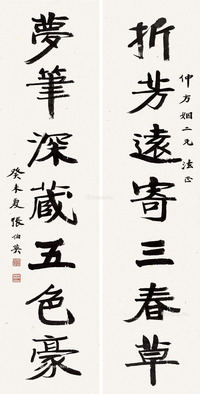 折芳遠寄三春草
仲方姻二兄 法正
夢筆深藏五色豪
癸未夏 張伯英